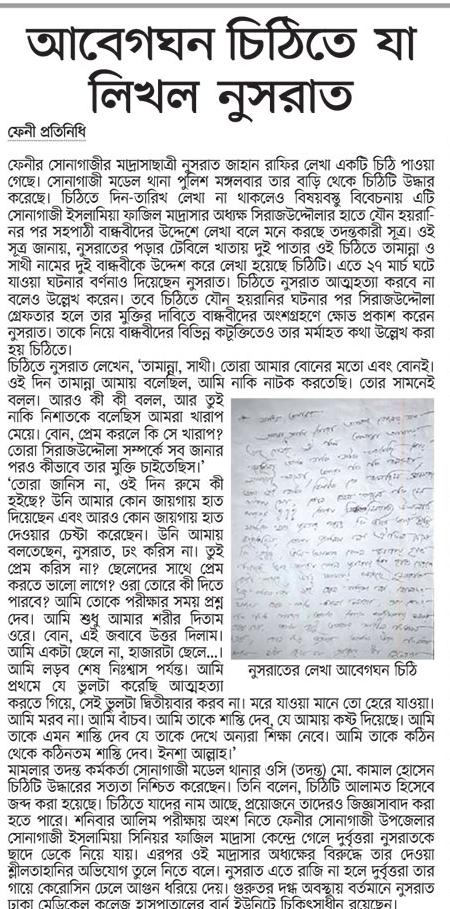 আবেগঘন চিঠিতে যা
লিখল নুসরাত
ফেনী প্রতিনিধি
ফেনীর সোনাগাজীর মাদ্রাসাছাত্রী নুসরাত জাহান রাফির লেখা একটি চিঠি পাওয়া
গেছে। সোনাগাজী মডেল থানা পুলিশ মঙ্গলবার তার বাড়ি থেকে চিঠিটি উদ্ধার
করেছে। চিঠিতে দিন-তারিখ লেখা না থাকলেও বিষয়বস্তু বিবেচনায় এটি
সোনাগাজী ইসলামিয়া ফাজিল মাদ্রাসার অধ্যক্ষ সিরাজউদ্দৌলার হাতে যৌন হয়রানি-
নর পর সহপাঠী বান্ধবীদের উদ্দেশে লেখা বলে মনে করছে তদন্তকারী সূত্র। ওই
সূত্র জানায়, নুসরাতের পড়ার টেবিলে খাতায় দুই পাতার ওই চিঠিতে তামান্না ও
সাথী নামের দুই বান্ধবীকে উদ্দেশ করে লেখা হয়েছে চিঠিটি। এতে ২৭ মার্চ ঘটে
যাওয়া ঘটনার বর্ণনাও দিয়েছেন নুসরাত। চিঠিতে নুসরাত আত্মহত্যা করবে না
বলেও উল্লেখ করেন। তবে চিঠিতে যৌন হয়রানির ঘটনার পর সিরাজউদ্দৌলা
গ্রেফতার হলে তার মুক্তির দাবিতে বান্ধবীদের অংশগ্রহণে ক্ষোভ প্রকাশ করেন
নুসরাত। তাকে নিয়ে বান্ধবীদের বিভিন্ন কটূক্তিতেও তার মর্মাহত কথা উল্লেখ করা
হয় চিঠিতে।
চিঠিতে নুসরাত লেখেন, ‘তামান্না, সাথী। তোরা আমার বোনের মতো এবং বোনই।
ওই দিন তামান্না আমায় বলেছিল, আমি নাকি নাটক করতেছি। তোর সামনেই
বলল। আরও কী কী বলল, আর তুই
নাকি নিশাতকে বলেছিস আমরা খারাপ
মেয়ে। বোন, প্রেম করলে কি সে খারাপ?
তোরা সিরাজউদ্দৌলা সম্পর্কে সব জানার
পরও কীভাবে তার মুক্তি চাইতেছিস।’
‘তোরা জানিস না, ওই দিন রুমে কী
হইছে? উনি আমার কোন জায়গায় হাত
দিয়েছেন এবং আরও কোন জায়গায় হাত
দেওয়ার চেষ্টা করেছেন। উনি আমায়
বলতেছেন, নুসরাত, ঢং করিস না। তুই
প্রেম করিস না? ছেলেদের সাথে প্রেম
করতে ভালো লাগে? ওরা তোরে কী দিতে
পারবে? আমি তোকে পরীক্ষার সময় প্রশ্ন
দেব। আমি শুধু আমার শরীর দিতাম
ওরে। বোন, এই জবাবে উত্তর দিলাম।
আমি একটা ছেলে না, হাজারটা ছেলে...।
আমি লড়ব শেষ নিঃশ্বাস পর্যন্ত। আমি
প্রথমে যে ভুলটা করেছি আত্মহত্যা
নুসরাতের লেখা আবেগঘন চিঠি
করতে গিয়ে, সেই ভুলটা দ্বিতীয়বার করব না। মরে যাওয়া মানে তো হেরে যাওয়া।
আমি মরব না। আমি বাঁচব। আমি তাকে শাস্তি দেব, যে আমায় কষ্ট দিয়েছে। আমি
তাকে এমন শাস্তি দেব যে তাকে দেখে অন্যরা শিক্ষা নেবে। আমি তাকে কঠিন
থেকে কঠিনতম শাস্তি দেব। ইনশা আল্লাহ।’
মামলার তদন্ত কর্মকর্তা সোনাগাজী মডেল থানার ওসি (তদন্ত) মো. কামাল হোসেন
চিঠিটি উদ্ধারের সত্যতা নিশ্চিত করেছেন। তিনি বলেন, চিঠিটি আলামত হিসেবে
জব্দ করা হয়েছে। চিঠিতে যাদের নাম আছে, প্রয়োজনে তাদেরও জিজ্ঞাসাবাদ করা
হতে পারে। শনিবার আলিম পরীক্ষায় অংশ নিতে ফেনীর সোনাগাজী উপজেলার
সোনাগাজী ইসলামিয়া সিনিয়র ফাজিল মাদ্রাসা কেন্দ্রে গেলে দুর্বৃত্তরা নুসরাতকে
ছাদে ডেকে নিয়ে যায়। এরপর ওই মাদ্রাসার অধ্যক্ষের বিরুদ্ধে তার দেওয়া
শ্লীলতাহানির অভিযোগ তুলে নিতে বলে। নুসরাত এতে রাজি না হলে দুর্বৃত্তরা তার
গায়ে কেরোসিন ঢেলে আগুন ধরিয়ে দেয়। গুরুতর দগ্ধ অবস্থায় বর্তমানে নুসরাত
ঢাকা মেডিকেল কলেজ হাসপাতালের বার্ন ইউনিটে চিকিৎসাধীন রয়েছেন।